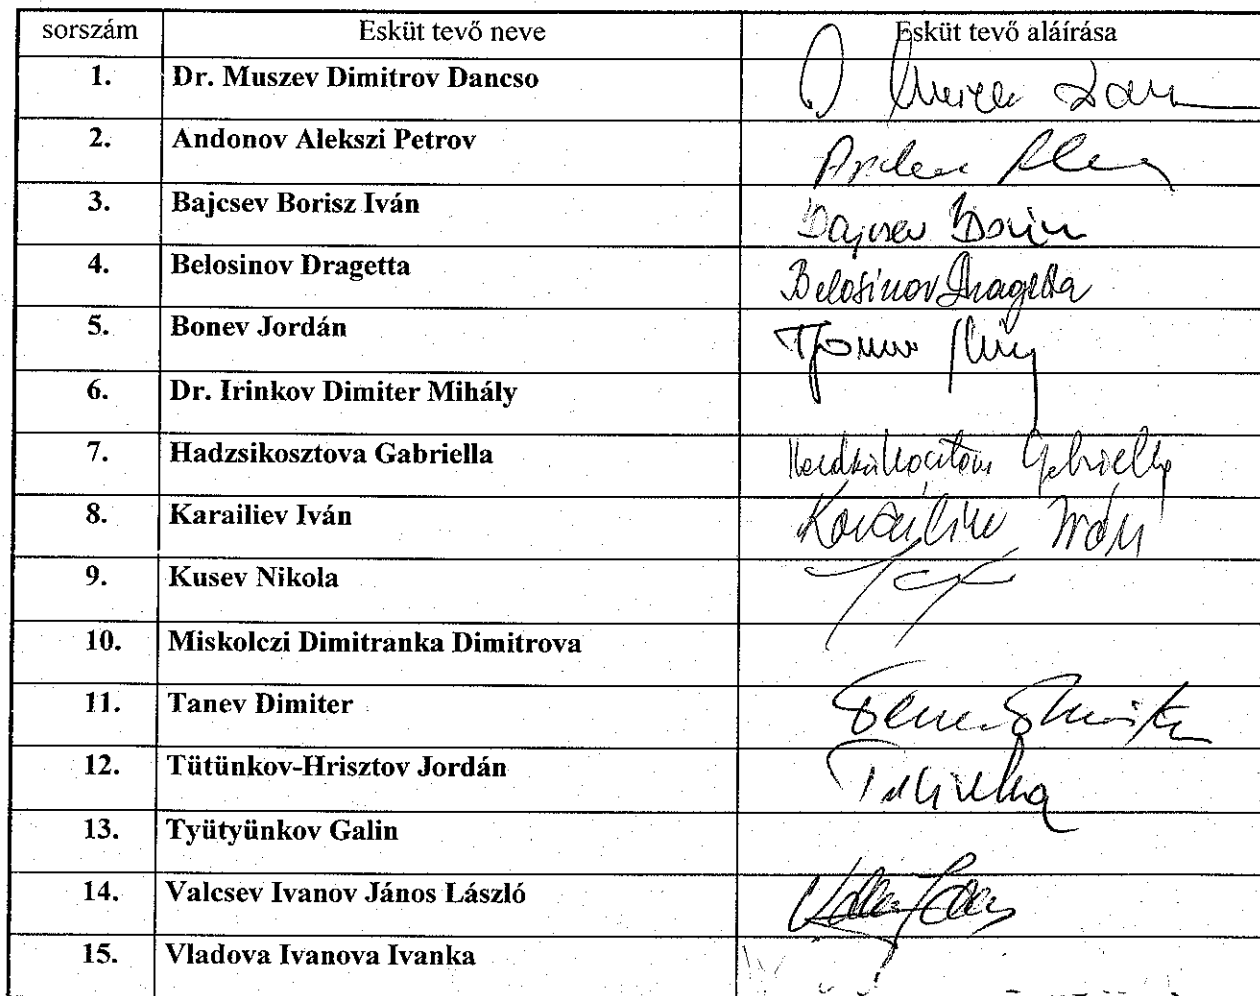 sorszám Esküt tevő neve Esküt tevő aláírása
1. Dr. Muszev Dimitrov Dancso
2. Andonov Alekszi Petrov
3. Bajcsev Borisz Iván Bajcsev Boris
4. Belosinov Dragetta Belosinov Dragetta
5. Bonev Jordán
6. Dr. Irinkov Dimiter Mihály
7. Hadzsikosztova Gabriella Gabriella
8. Karailiev Iván Karailiev Iván
9. Kusev Nikola
10. Miskolczi Dimitranka Dimitrova
11. Tanev Dimiter
12. Tütünkov-Hrisztov Jordán
13. Tyütyünkov Galin
14. Valcsev Ivanov János László
15. Vladova Ivanova Ivanka